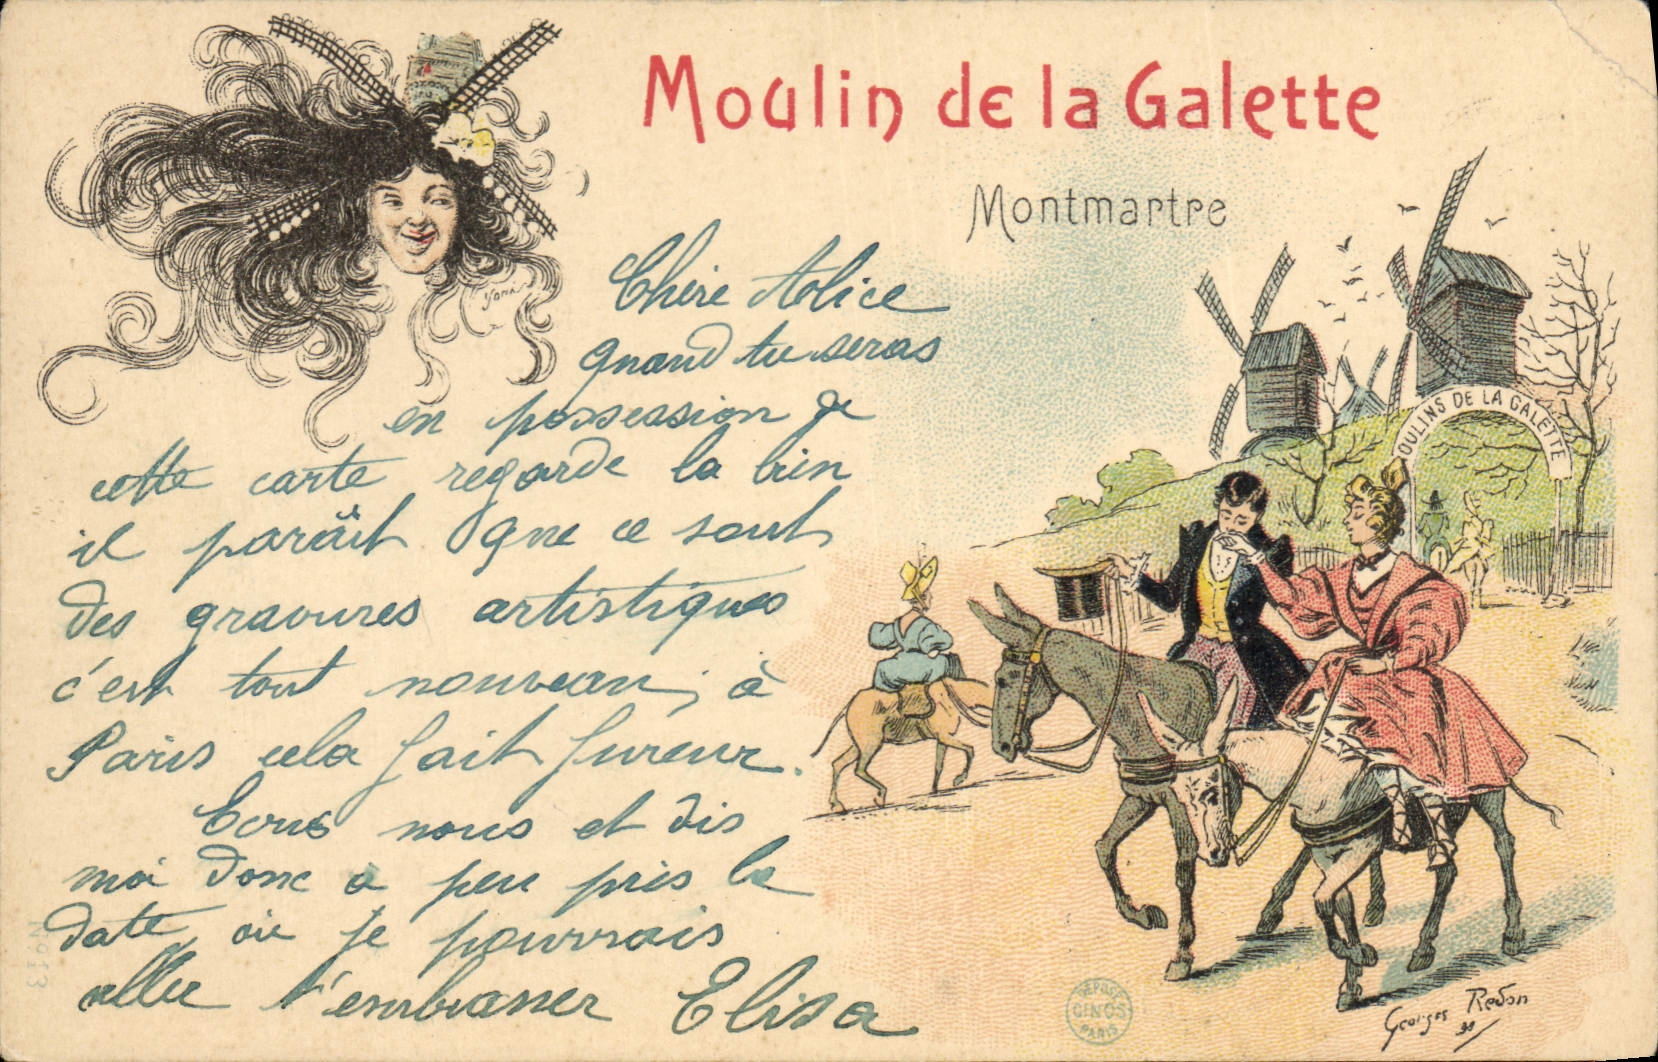 Moulin de la Galette
Montmartre
MOULINS DE LA GALETTE
Chère Alice
quand tu seras
en possession de
cette carte regarde la bien
il paraît que ce sont
des gravures artistiques
c'est tout nouveau, à
Paris cela fait fureur.
Ecris nous et dis
moi donc à peu près la
date où je pourrais
aller t'embrasser Elisa
DÉPOSÉ
CINOS
PARIS
Georges Redon